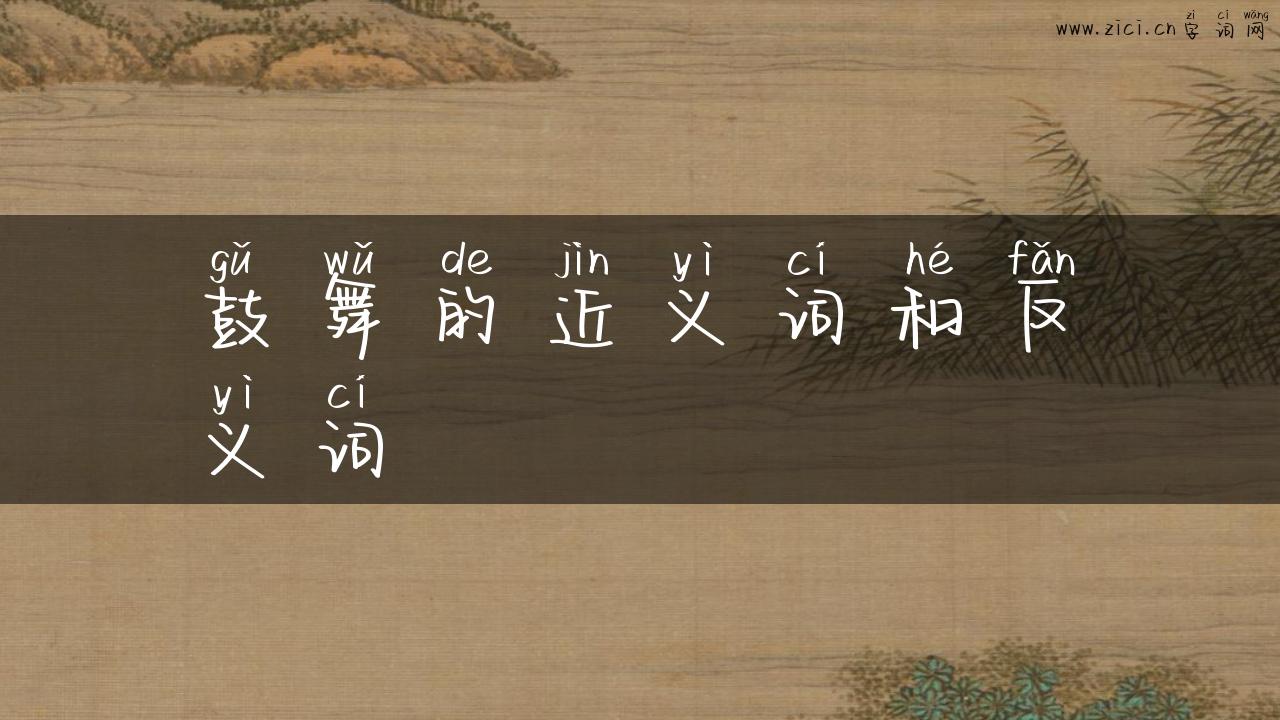 zì cí wǎng
www.zici.cn 字词网
gǔ wǔ de jìn yì cí hé fǎn
鼓舞的近义词和反
yì cí
义词